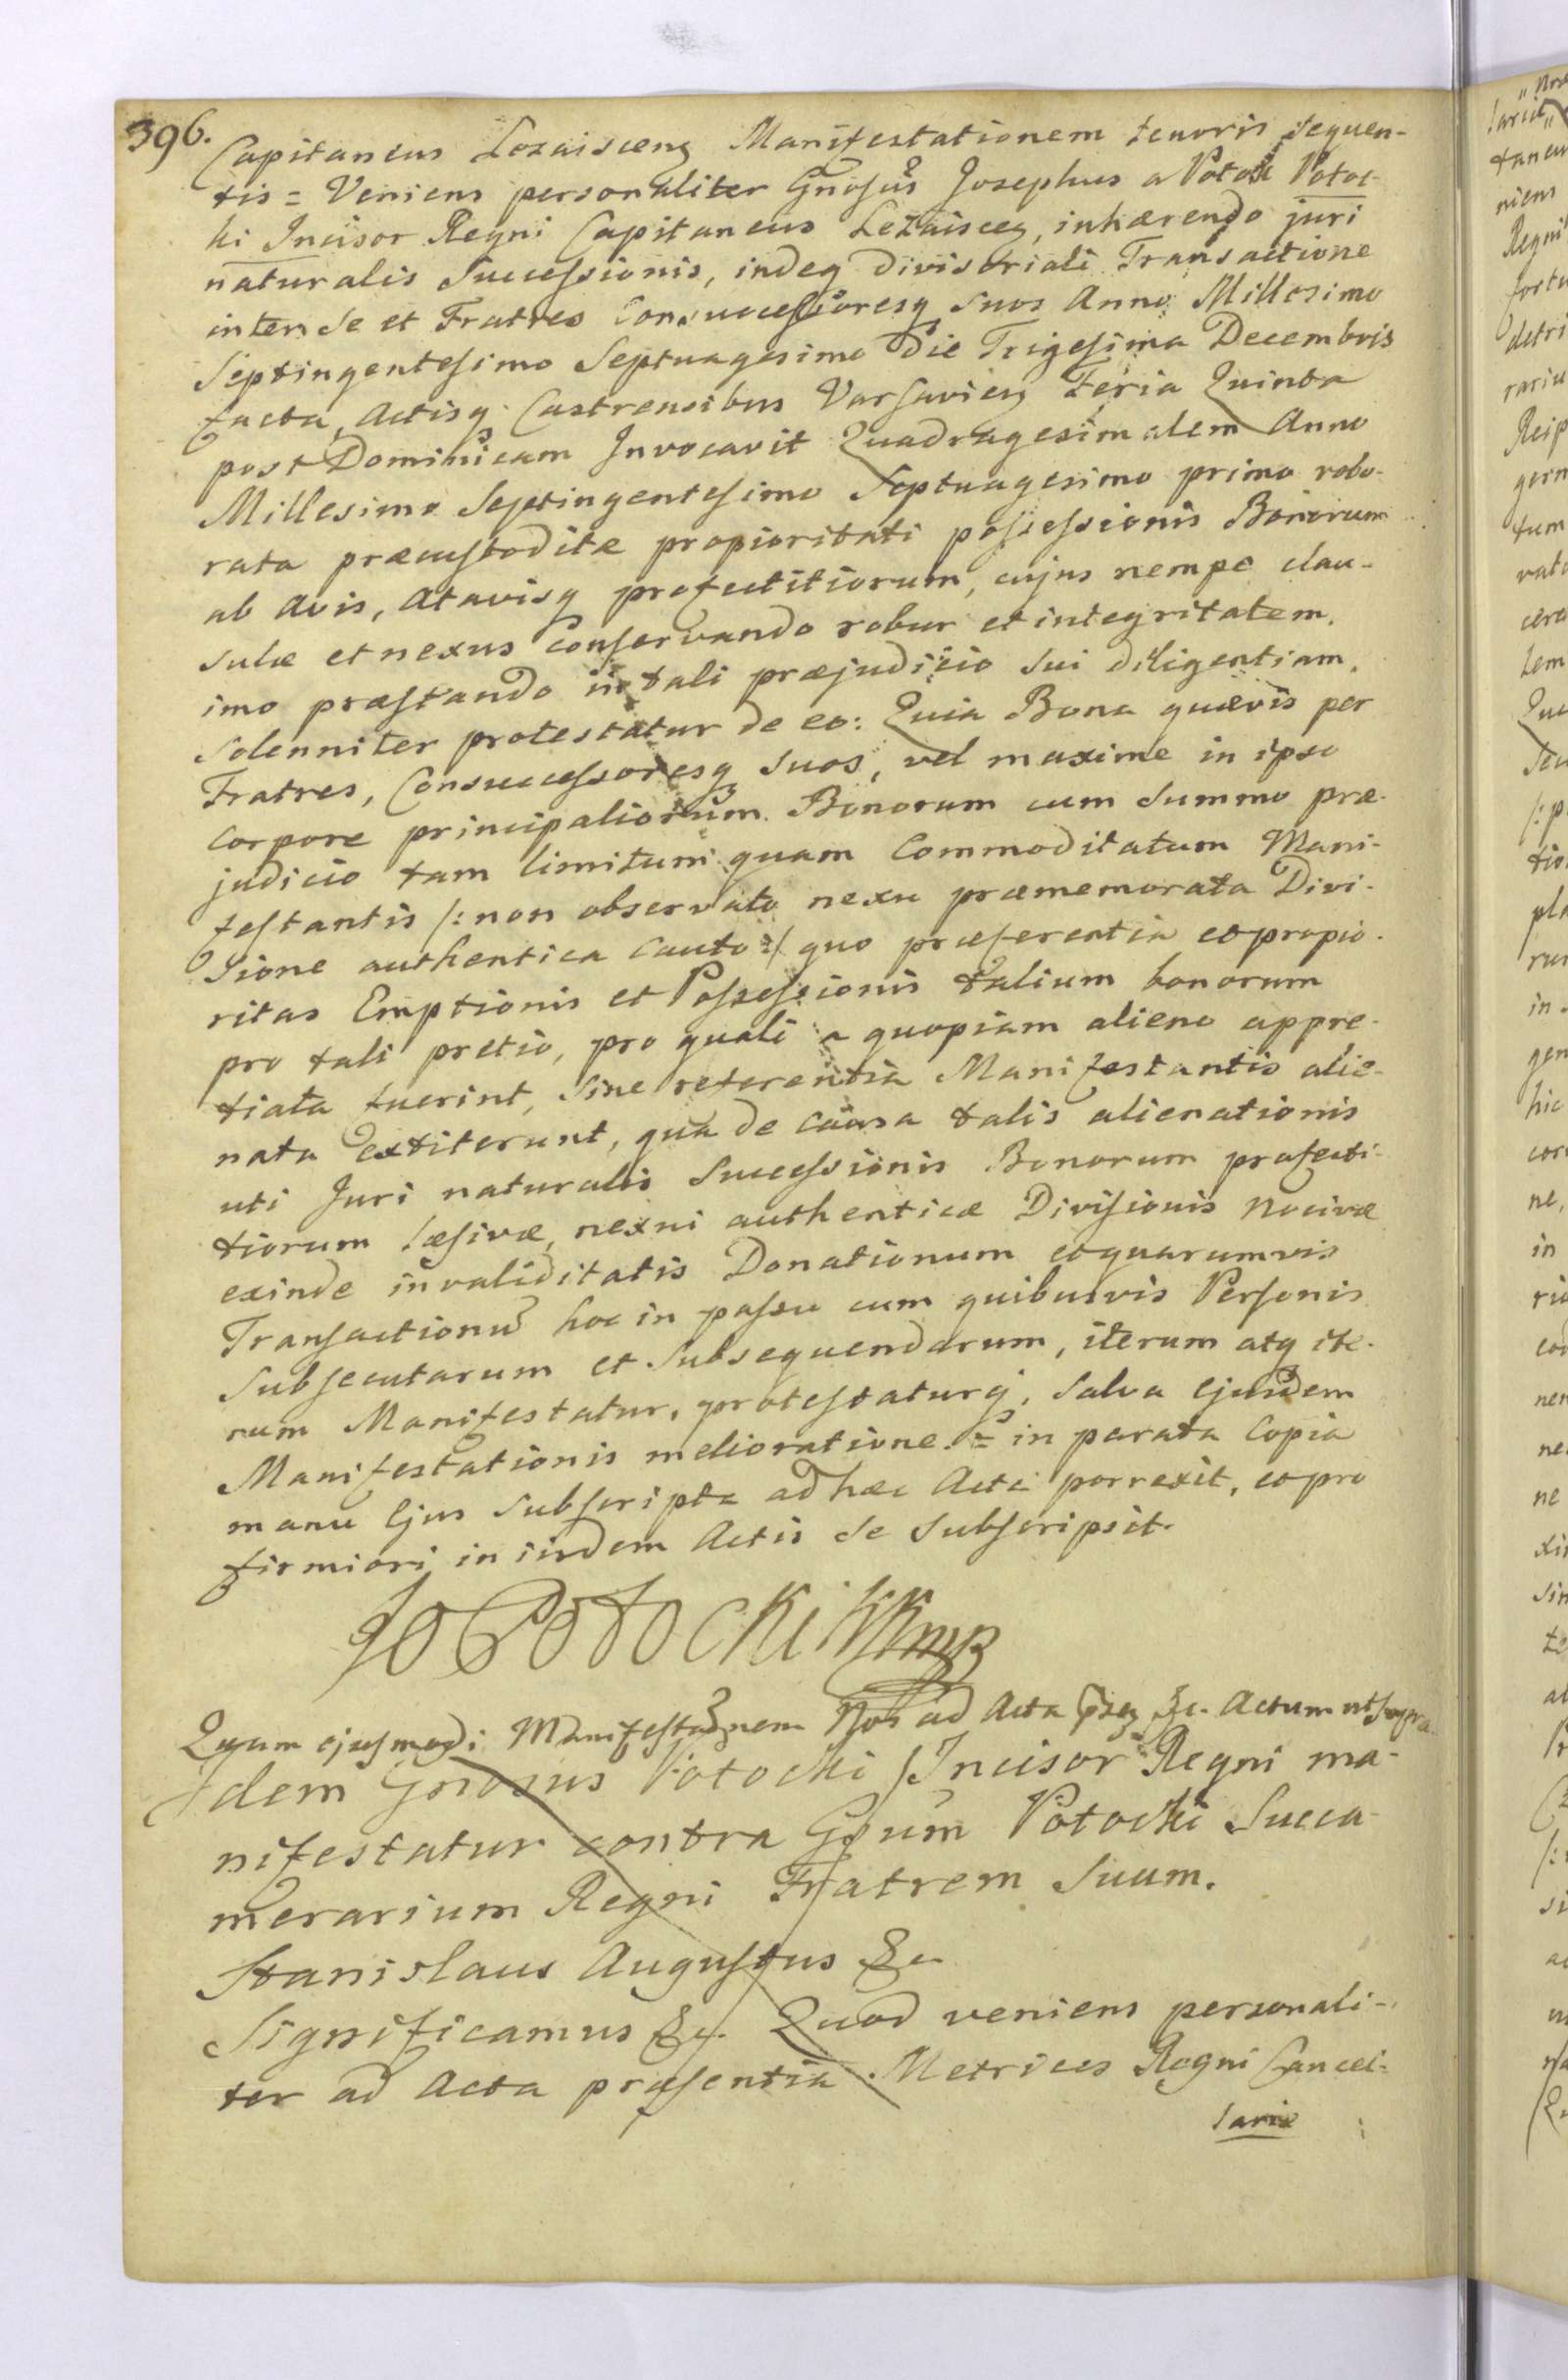 396.
Capitaneus Lezaiscens Manifestationem tenoris sequen-
tis = Veniens personaliter Gnosus Josephus a Potok Potoc-
ki Incisor Regni Capitaneus Lezaiscens, inhærendo juri
naturalis Successionis, indeq divisoriali Transactione
inter se et Fratres Consuccessoresq suos Anno Millesimo
Septingentesimo Septuagesimo Die Trigesima Decembris
facta, Actisq Castrensibus Varsaviens Feria Quinta
post Dominicam Invocavit Quadragesimalem Anno
Millesimo Septingentesimo Septuagesimo primo robo-
rata præcustoditæ propioritati possessionis Bonorum
ab Avis, Atavisq profectitiorum, cujus nempe clau-
sulæ et nexus conservando robur et integritatem,
imo præstando in tali præjudicio sui diligentiam,
Solenniter protestatur de eo: Quia Bona quævis per
Fratres, Consuccessoresq suos, vel maxime in ipso
corpore principaliorum Bonorum cum summo præ-
judicio tam limitum quam Commoditatum Mani-
festantis /: non observato nexu præmemorata Divi-
sione authentica cauto :/ quo præferentia et propio-
ritas Emptionis et Possessionis talium bonorum
pro tali pretio, pro quali a quopiam alieno appre-
tiata fuerint, sine referentia Manifestantis alie-
nata extiterunt, qua de causa talis alienationis
uti Juri naturalis Successionis Bonorum profecti-
tiorum læsivæ, nexui authenticæ Divisionis nocivæ
exinde invaliditatis Donationum et quarumvis
Transactionu hoc in passu cum quibusvis Personis
subsecutarum et subsequendarum, iterum atq ite-
rum Manifestatur, protestaturq, salva ejusdem
Manifestationis melioratione. = in parata Copia
manu Ejus subscripta ad hæc Acta porrexit, et pro
firmiori in iisdem Actis se subscripsit.
Jo Potocki KKmp
Quam ejusmodi Manifestaonem Nos ad Acta præs &c. Actum ut supra
Idem Gnosus Potocki Incisor Regni ma-
nifestatur contra Gsum Potocki Succa-
merarium Regni Fratrem suum.
Stanislaus Augustus &c
Significamus &c. Quod veniens personali-
ter ad Acta præsentia Metrices Regni Cancel-
lariæ